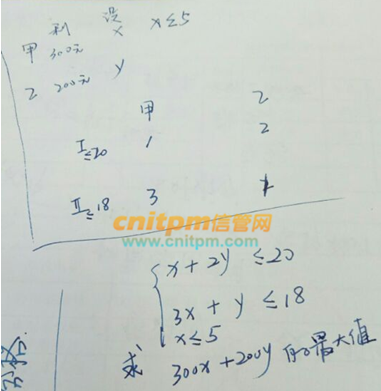 利 设 x≤5
甲 300元 x
乙 200元 y
甲 乙
I≤20 1 2
II≤18 3 1
cnitpm信管网
www.cnitpm.com
x+2y ≤20
3x+y ≤18
x≤5
求 300x+200y 的最大值